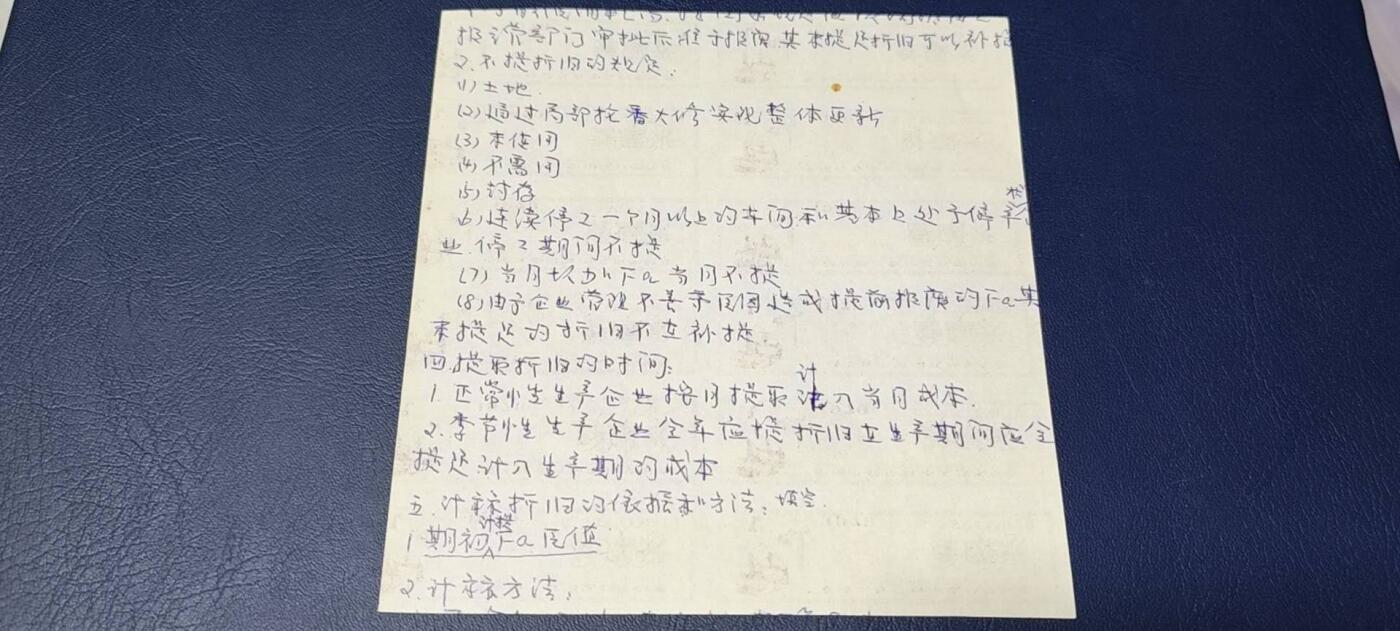 报经管部门审批后准予报废其未提足折旧可以补提
2.不提折旧的规定.
(1)土地.
(2)通过局部轮番大修实现整体更新
(3)未使用
(4)不需用
(5)封存
(6)连续停工一个月以上的车间和基本上处于停产
业.停工期间不提
(7)当月增加Fa当月不提
(8)由于企业管理不善等原因造成提前报废的Fa其
未提足的折旧不在补提.
四.提取折旧的时间:
1.正常性生产企业按月提取计入当月成本.
2.季节性生产企业全年应提折旧在生产期间应全
提足计入生产期的成本
五.计算折旧的依据和方法:填空.
1.期初计提Fa原值
2.计算方法: